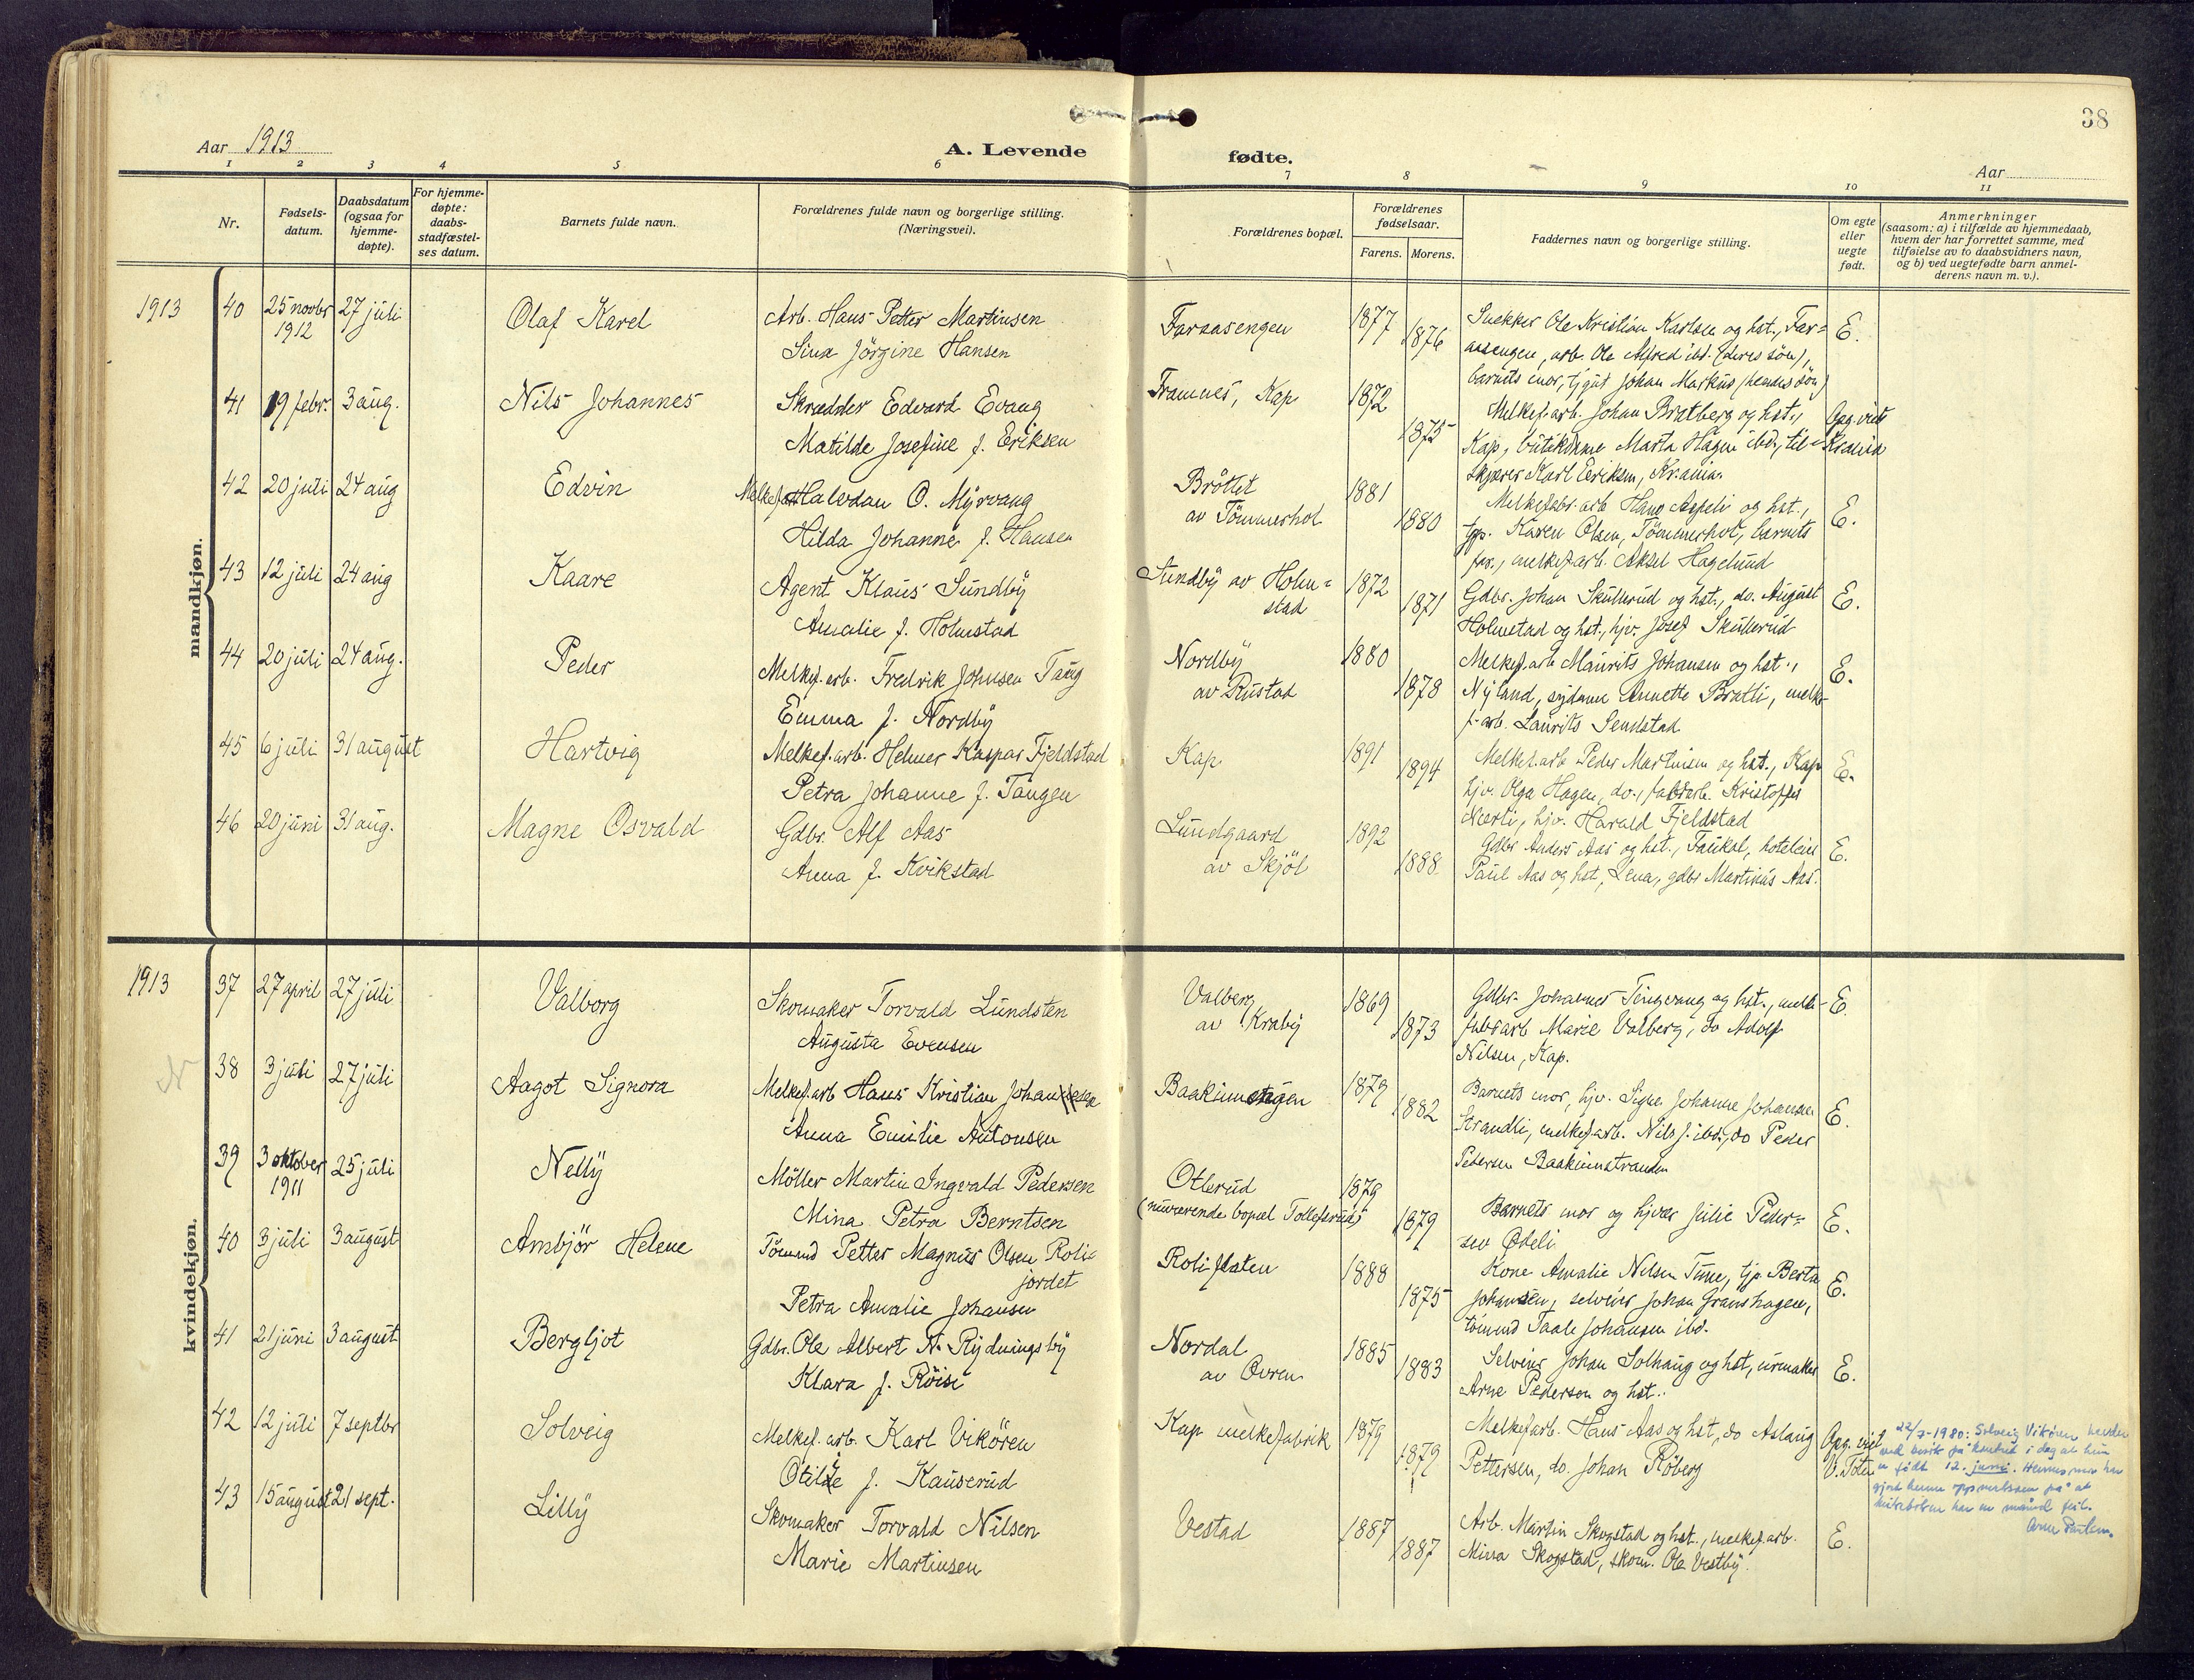 38
Aar 1913
A. Levende
fødte.
Aar
1 2 3 4 5 6 7 8 9 10 11
Nr.
Fødsels-
datum.
Daabsdatum
(ogsaa for
hjemme-
døpte).
For hjemme-
døpte:
daabs-
stadfæstel-
ses datum.
Barnets fulde navn.
Forældrenes fulde navn og borgerlige stilling.
(Næringsvei).
Forældrenes bopæl.
Forældrenes
fødselsaar.
Farens. Morens.
Faddernes navn og borgerlige stilling.
Om egte
eller
uegte
født.
Anmerkninger
(saasom: a) i tilfælde av hjemmedaab,
hvem der har forrettet samme, med
tilføielse av to daabsvidners navn,
og b) ved uegtefødte barn anmel-
derens navn m. v.).
mandkjøn.
1913 40 25 novbr 1912 27 juli Olaf Karel
Arb. Hans Petter Martinsen
Sina Jörgine Hansen
Faraasengen 1877 1876
Snekker Ole Kristian Karlsen og hst., Far=
aasengen, arb. Ole Alfred ibd. (deres søn),
barnets mor, tjgut Johan Markus (hendes søn)
E.
41 19 febr. 3 aug. Nils Johannes
Skrædder Edvard Evang
Matilde Josefine f. Eriksen
Framnes, Kap 1872 1875
Melkef.arb. Johan Bratberg og hst.,
Kap, butikdame Marta Hagen ibd., til-
skjærer Karl Eriksen, Kr.ania.
Opg. viet
Kr.ania
42 20 juli 24 aug Edvin
Melkef.arb Halvdan O. Myrvang
Hilda Johanne f. Hansen
Bröttet
av Tömmerhol 1881 1880
Melkefabr.arb Hans Aspeli og hst.,
tjp. Karen Olsen, Tömmerhol, barnets
far, melkef.arb. Aksel Hagelund
E.
43 12 juli 24 aug Kaare
Agent Klaus Sundby
Amalie f. Holmstad
Sundby av Holm=
stad 1872 1871
Gdbr. Johan Skullerud og hst., do. August
Holmstad og hst., hjv. Josef Skullerud
E.
44 20 juli 24 aug. Peder
Melkef.arb. Fredrik Johnsen Taug
Emma f. Nordby
Nordby
av Rustad 1880 1878
Melkef.arb Maurits Johansen og hst.,
Nyland, sydame Annette Bratli, melke-
f.arb. Laurits Sendstad
E.
45 6 juli 31 august Hartvig
Melkef.arb. Helmer Kaspar Fjeldstad
Petra Johanne f. Tangen
Kap 1891 1894
Melkef.arb Peder Martinsen og hst., Kap
hjv. Olga Hagen, do., fabrarb. Kristoffer
Nærli, hjv. Harald Fjeldstad
E.
46 20 juni 31 aug. Magne Osvald
Gdbr. Alf Aas
Anna f. Kvikstad
Lundgaard
av Skjöl 1892 1888
Gdbr Anders Aas og hst., Faukal, hoteleier
Paul Aas og hst, Lena, gdbr Martinus Aas.
E.
kvindekjøn.
1913 37 27 april 27 juli Valborg
Skomaker Torvald Lundsten
Augusta Evensen
Valberg
av Kraby 1869 1873
Gdbr. Johannes Tingvang og hst., melke-
fabrarb Marie Valberg, do Adolf
Nilsen, Kap.
E.
N 38 3 juli 27 juli Aagot Signora
Melkef.arb Hans Kristian Johansen
Anna Emilie Antonsen
Baakinnengen 1879 1882
Barnets mor, hjv. Signe Johanne Johansen
Strandli, melkef.arb. Nils J. ibd., do Peder
Pedersen Baakinnstranden
E.
39 3 oktober 1911 25 juli Nelly
Möller Martin Ingvald Pedersen
Mina Petra Berntsen
Otterud
(nuværende bopæl Tollefsrud) 1879 1879
Barnets mor og hjver Julie Peder=
sen Ødeli
E.
40 3 juli 3 august Ambjör Helene
Tömmd Petter Magnus Olsen Roli=
jordet
Petra Amalie Johansen
Roliflaten 1888 1875
Kone Amalie Nilsen Tune, tjp. Berta
Johansen, selveier Johan Granshagen,
tömmd Paale Johansen ibd.
E.
41 21 juni 3 august Bergljot
Gdbr. Ole Albert N. Rydningsby
Klara f. Röise
Nordal
av Övren 1885 1883
Selveier Johan Solhaug og hst, urmaker
Arne Pedersen og hst..
E.
42 12 juli 7 septbr Solveig
Melkef.arb. Karl Vikören
Otilie f. Kauserud
Kap melkefabrik 1879 1879
Melkef.arb. Hans Aas og hst, do Aslaug
Pettersen, do. Johan Röberg
Opg. viet
V. Toten
22/7-1980: Solveig Vikören hevder
ved besök på kontoret i dag at hun
er født 12. juni. Hennes mor har
gjort henne oppmerksom på at
kirkeboken har en måned feil.
43 15 august 21 sept. Lilly
Skomaker Torvald Nilsen
Marie Martinsen
Vestad 1887 1887
Arb. Martin Skogstad og hst., melkef.arb.
Mina Skogstad, skom. Ole Vestby.
E.